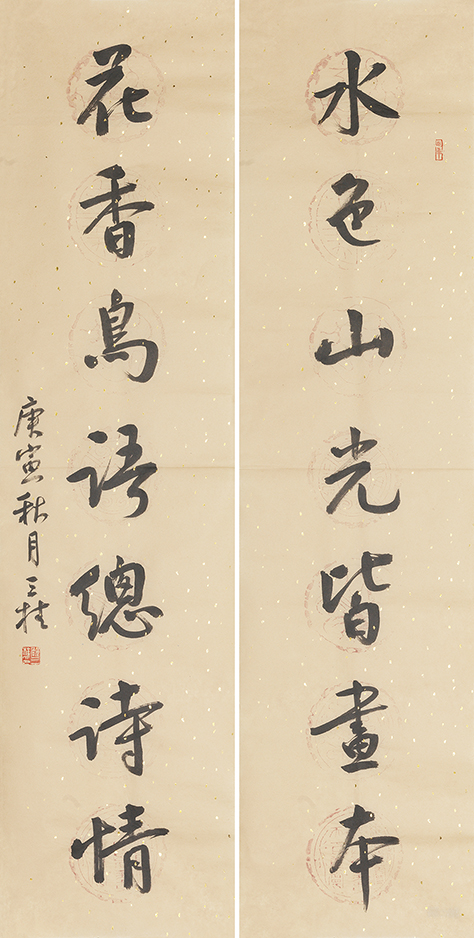 水色山光皆畫本
花香鳥語總詩情
庚寅秋月三桂